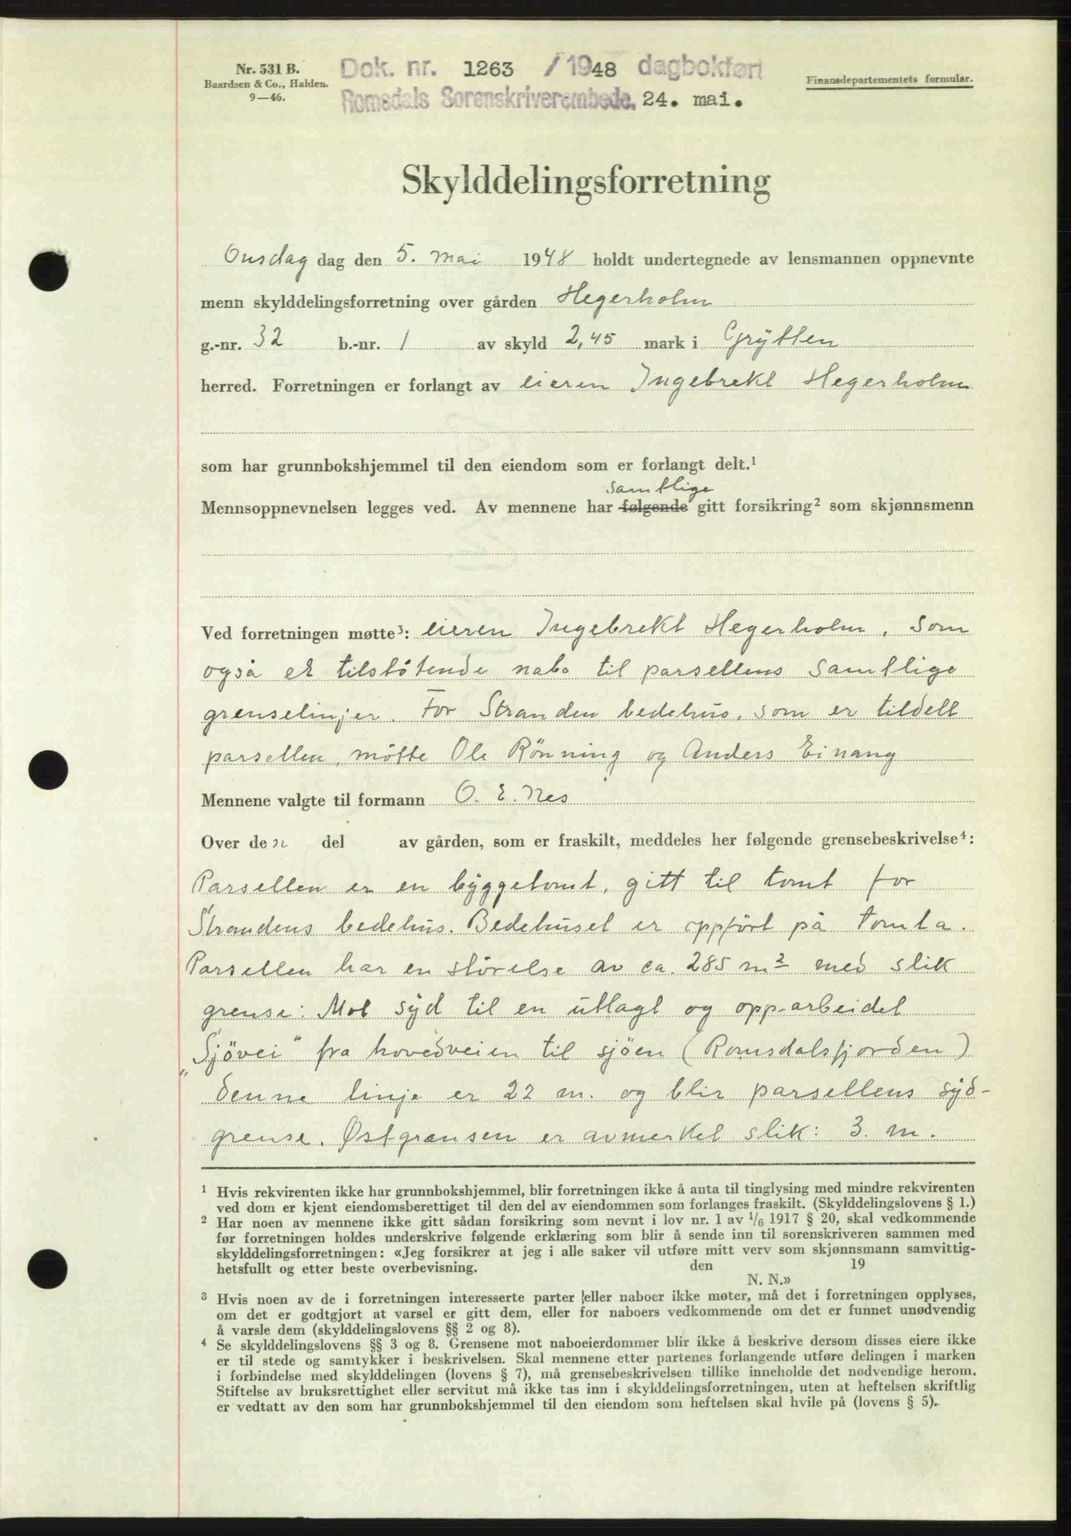 Nr. 531 B.
Baardsen & Co., Halden.
9—46.
Dok. nr. 1263 /1948 dagbokført
Romsdals Sorenskriverembede. 24. mai.
Finansdepartementets formular.
Skylddelingsforretning
Onsdag dag den 5. mai 1948 holdt undertegnede av lensmannen oppnevnte
menn skylddelingsforretning over gården Hegerholm
g.-nr. 32 b.-nr. 1 av skyld 2,45 mark i Grytten
herred. Forretningen er forlangt av eieren Ingebrekt Hegerholm
som har grunnbokshjemmel til den eiendom som er forlangt delt.¹
samtlige
Mennsoppnevnelsen legges ved. Av mennene har følgende gitt forsikring² som skjønnsmenn
Ved forretningen møtte³: eieren Ingebrekt Hegerholm, som
også er tilstötende nabo til parsellens samtlige
grenselinjer. For Stranden bedehus, som er tildelt
parsellen, mötte Ole Rönning og Anders Einang
Mennene valgte til formann O. E. Nes
Over den del av gården, som er fraskilt, meddeles her følgende grensebeskrivelse⁴:
Parsellen er en byggetomt, gitt til tomt for
Strandens bedehus. Bedehuset er oppfört på tomta.
Parsellen har en störelse av ca. 285 m² med slik
grense: Mot syd til en utlagt og opp-arbeidet
"Sjövei" fra hovedveien til sjöen (Romsdalsfjorden)
denne linje er 22 m. og blir parsellens syd-
grense. Østgrensen er avmerket slik: 3. m.
¹ Hvis rekvirenten ikke har grunnbokshjemmel, blir forretningen ikke å anta til tinglysing med mindre rekvirenten
ved dom er kjent eiendomsberettiget til den del av eiendommen som forlanges fraskilt. (Skylddelingslovens § 1.)
² Har noen av mennene ikke gitt sådan forsikring som nevnt i lov nr. 1 av 1/6 1917 § 20, skal vedkommende
før forretningen holdes underskrive følgende erklæring som blir å sende inn til sorenskriveren sammen med
skylddelingsforretningen: «Jeg forsikrer at jeg i alle saker vil utføre mitt verv som skjønnsmann samvittig-
hetsfullt og etter beste overbevisning. den 19
N. N.»
³ Hvis noen av de i forretningen interesserte parter eller naboer ikke møter, må det i forretningen opplyses,
om det er godtgjort at varsel er gitt dem, eller for naboers vedkommende om det er funnet unødvendig
å varsle dem (skylddelingslovens §§ 2 og 8).
⁴ Se skylddelingslovens §§ 3 og 8. Grensene mot naboeierdommer blir ikke å beskrive dersom disses eiere ikke
er til stede og samtykker i beskrivelsen. Skal mennene etter partenes forlangende utføre delingen i marken
i forbindelse med skylddelingen (lovens § 7), må grensebeskrivelsen tillike inneholde det nødvendige herom.
Stiftelse av bruksrettighet eller servitut må ikke tas inn i skylddelingsforretningen, uten at heftelsen skriftlig
er vedtatt av den som har grunnbokshjemmel til den eiendom som heftelsen skal hvile på (lovens § 5).